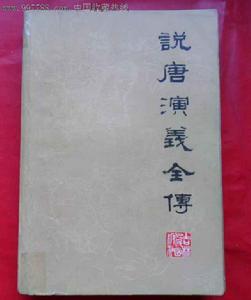 www.997788.com 中国收藏热线
説唐演義全傳